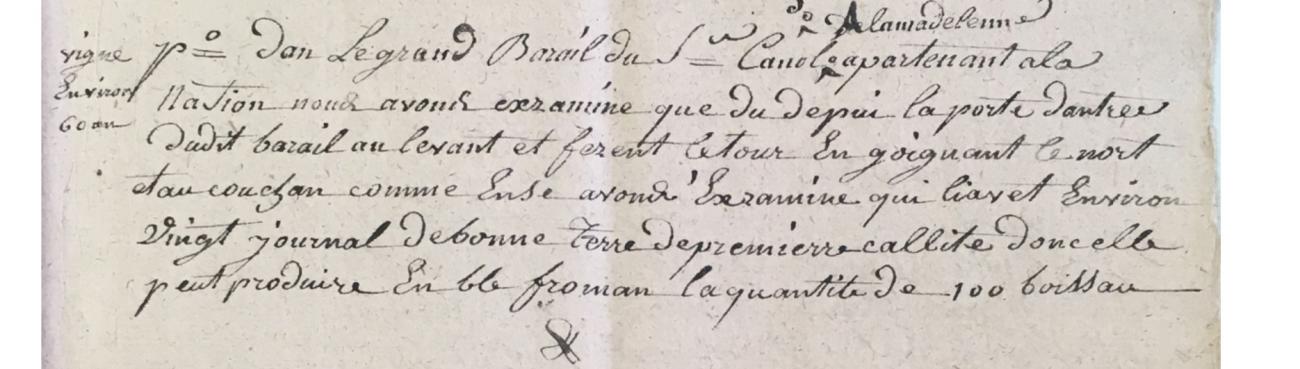 Delamadelenne
vigne
Environ
60 an
p.º dan Legrand Barail du S.ʳ Canole apartenant ala
Nation nous avons exzamine que du depui la porte dantree
dudit barail au levant et fezent le tour En goignant le nort
et au couchan comme Ense avons Exzamine qui liavet Environ
Vingt journal debonne Terre depremierre callite doncelle
peut produire En ble froman la quantite de 100 boissau